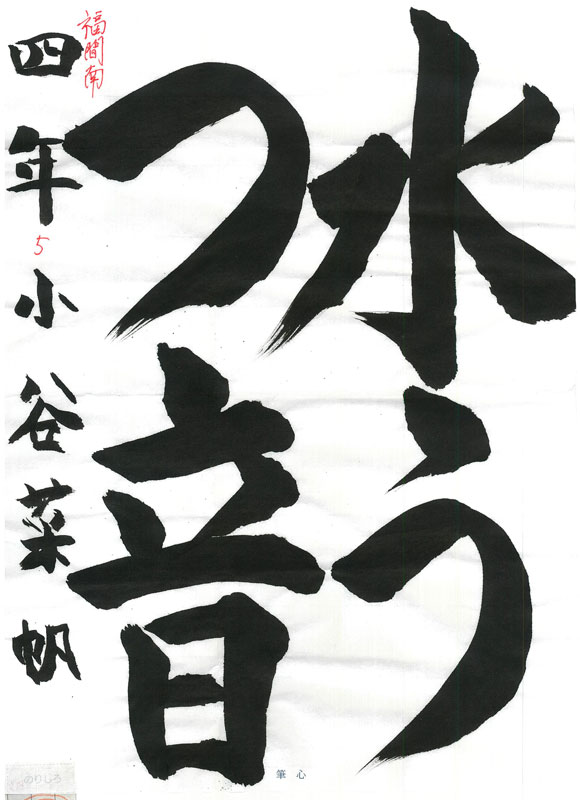 水う
つ音
福間南
四年5小谷菜帆
心筆
のりしろ